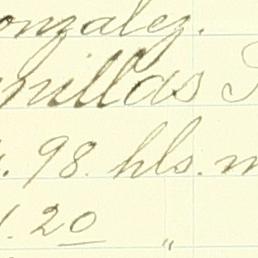 onzalez.
nillas
. 98. hls. m
1. 20 "